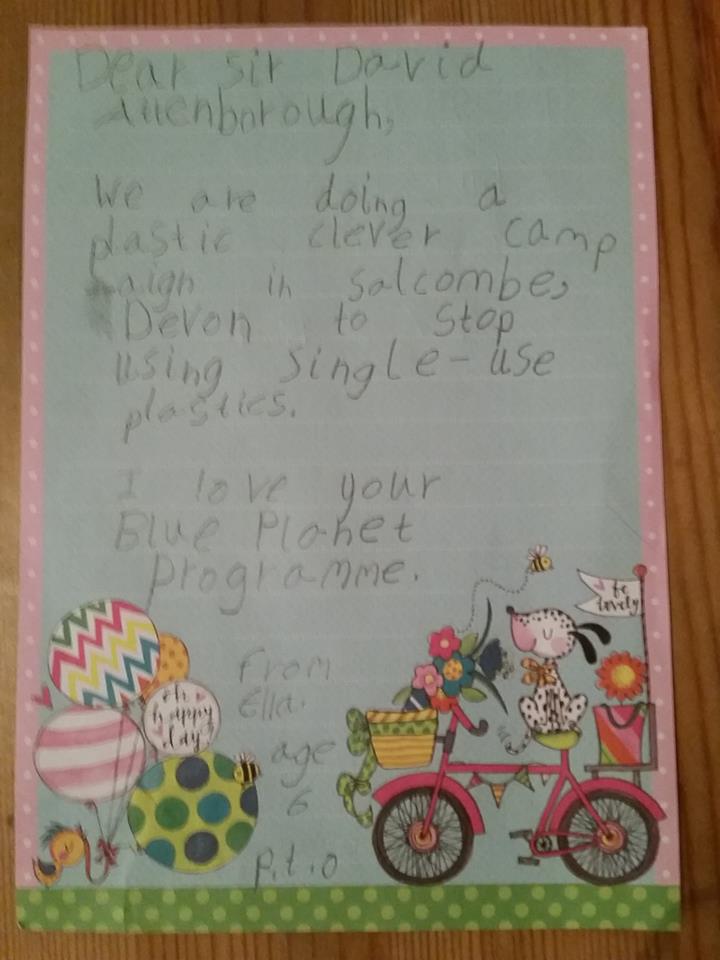 Dear Sir David
Attenborough,
We are doing a
plastic clever camp
aign in Salcombe,
Devon to stop
using single-use
plastics.
I love your
Blue Planet
programme.
From
Ella.
age
6
p.t.o
be
lovely
oh
happy
day